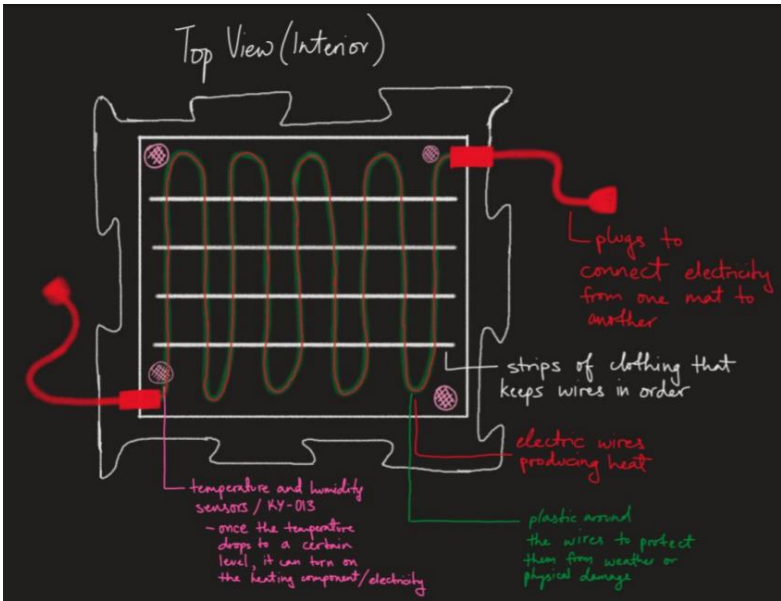 Top View (Interior)
plugs to
connect electricity
from one mat to
another
strips of clothing that
keeps wires in order
electric wires
producing heat
temperature and humidity
sensors / KY-013
- once the temperature
drops to a certain
level, it can turn on
the heating component/electricity
plastic around
the wires to protect
them from weather or
physical damage